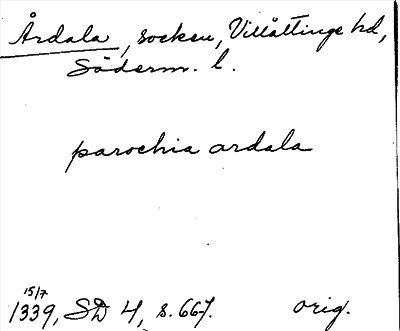 Årdala, socken, Villåttinge hd,
Söderm. l.
parochia ardala
15/7
1339, SD 4, s. 667. orig.